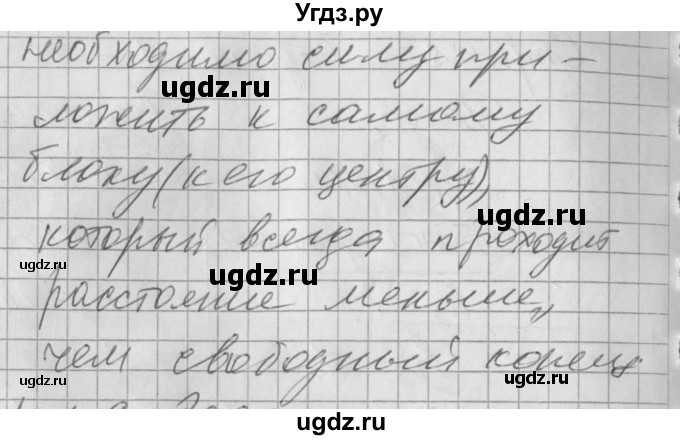 Угдз.ру
необходимо силу при-
ложить к самому
блоку (к его центру),
который всегда проходит
расстояние меньше,
чем свободный конец
ugdz.ru
ugdz.ru
ugdz.ru
ugdz.ru
ugdz.ru
ugdz.ru
ugdz.ru
ugdz.ru
ugdz.ru